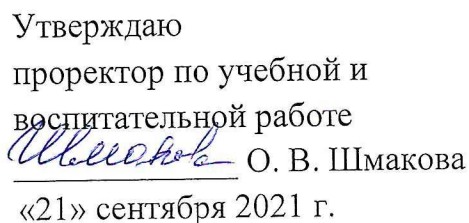 Утверждаю
проректор по учебной и
воспитательной работе
Шмакова О. В. Шмакова
«21» сентября 2021 г.